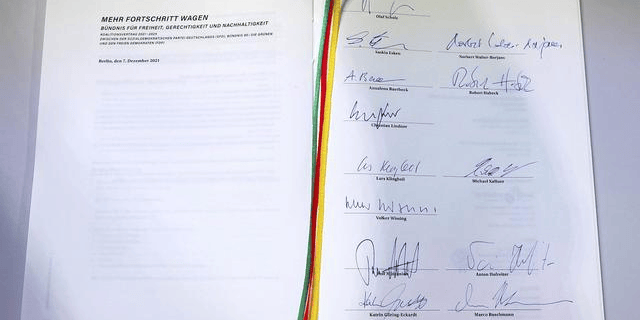 MEHR FORTSCHRITT WAGEN
BÜNDNIS FÜR FREIHEIT, GERECHTIGKEIT UND NACHHALTIGKEIT
KOALITIONSVERTRAG 2021–2025
ZWISCHEN DER SOZIALDEMOKRATISCHEN PARTEI DEUTSCHLANDS (SPD), BÜNDNIS 90 / DIE GRÜNEN
UND DEN FREIEN DEMOKRATEN (FDP)
Berlin, den 7. Dezember 2021
Olaf Scholz
Saskia Esken Norbert Walter-Borjans
A. Bae
Annalena Baerbock Robert Habeck
Christian Lindner
Lars Klingbeil Michael Kellner
Volker Wissing
Anton Hofreiter
Katrin Göring-Eckardt Marco Buschmann